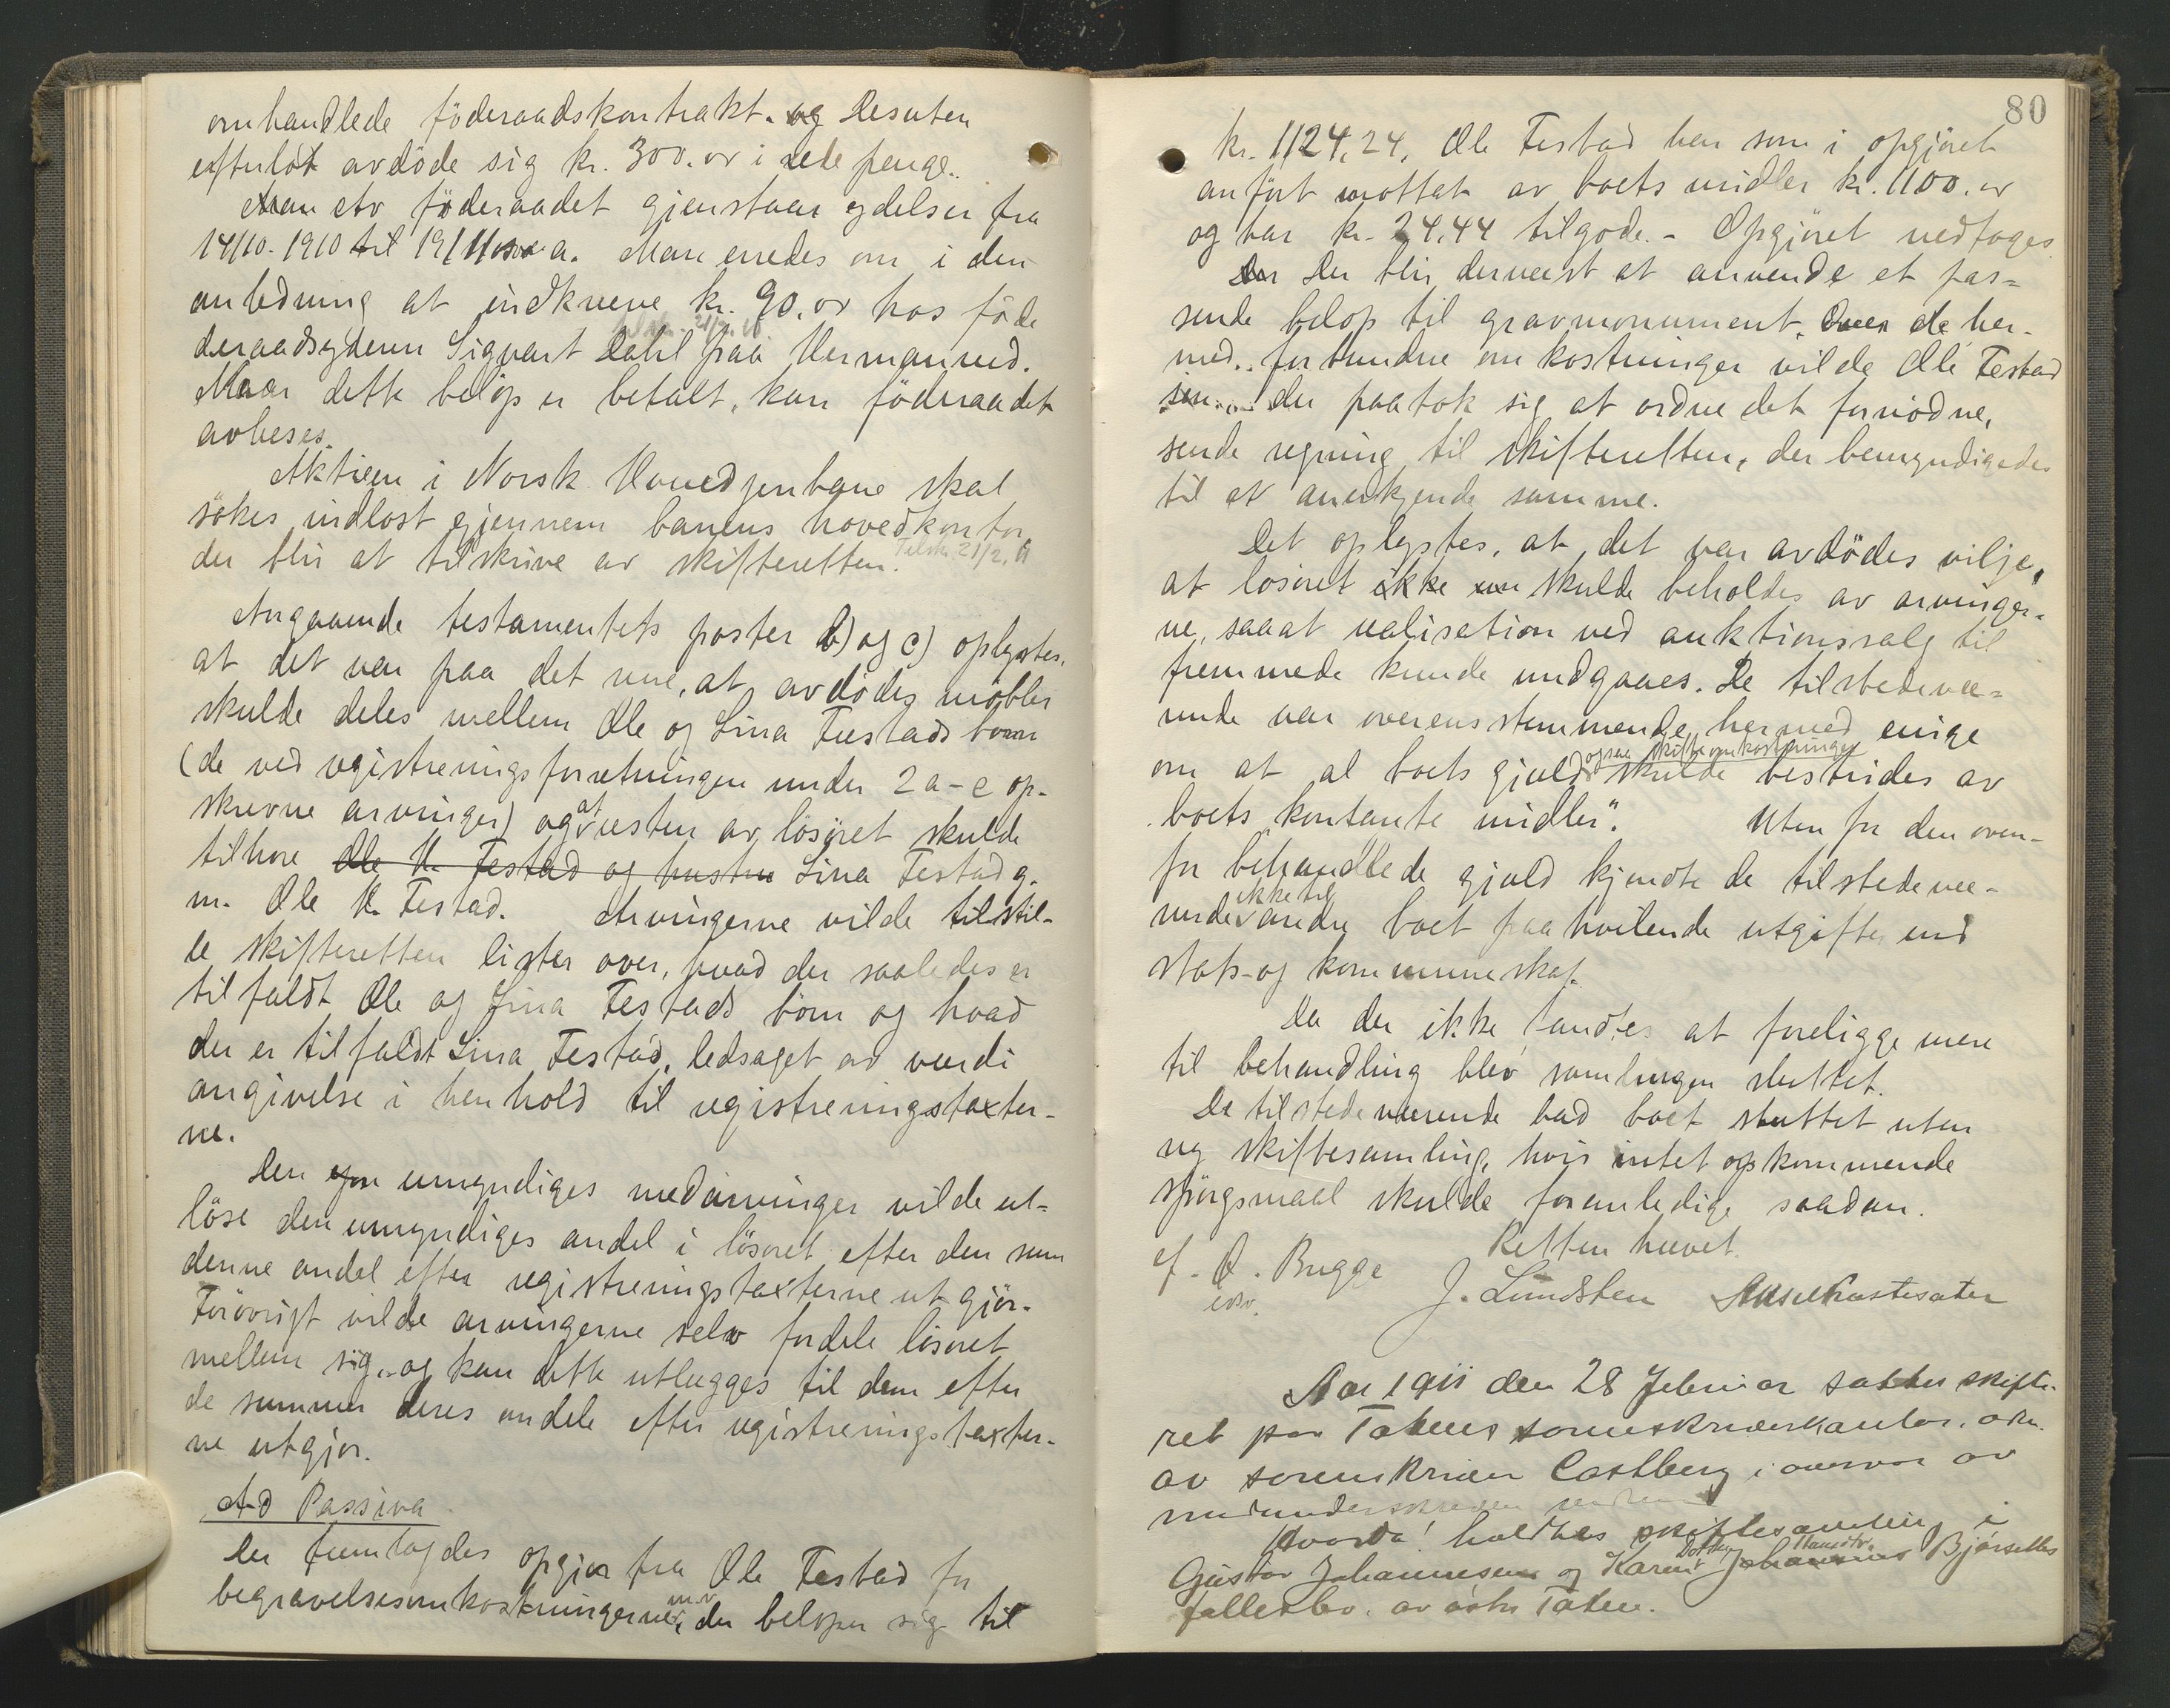 omhandlede föderaadskontrakt. og Desuten
efterlot avdöde sig kr. 300.00 i rede penge.
Man Av föderaadet gjenstaar ydelser fra
14/10-1910 til 19/1 1911 a. Man enedes om i den
anledning at indkræve kr. 90.00 hos föde
tilskr. 21/2. 11
deraadsyderen Sigvart Dahl paa Hermanrud.
Naar dette belöp er betalt, kan föderaadet
avlæses.
Aktien i Norsk Hovedjernbane skal
sökes indlöst gjennem banens hovedkontor
der blir at tilskrive av skifteretten. Tilskr. 21/2. 11
Angaaende testamentets poster b) og c) oplystes,
at det var paa det rene, at avdödes möbler
skulde deles mellem Ole og Lina Festads börn
(de ved registreringsforretningen under 2 a-e op-
skrevne arvinger) og at resten av lösöret skulde
tilhöre Ole H. Festad og hustru Lina Festad g.
m. Ole H. Festad. Arvingerne vilde tilstil-
le skifteretten lister over, hvad der saaledes er
tilfaldt Ole og Lina Festads börn og hvad
der er tilfaldt Lina Festad, ledsaget av værdi
angivelse i henhold til registreringstaxter-
ne.
Den umyndiges medarvinger vilde ut-
löse den umyndiges andel i lösöret efter den sum
denne andel efter registreringstaxterne utgjör.
Forövrigt vilde arvingerne selv fordele lösöret
mellem sig, og kan dette utlægges til dem efter
de summer deres andele efter registreringstaxter-
ne utgjör.
Ad Passiva
Der fremlagdes opgjör fra Ole Festad for
begravelsesomkostningerne m.v., der belöper sig til
80
kr. 1124,24. Ole Festad har som i opgjöret
anfört mottat av boets midler kr. 1100.00
og har kr. 24,44 tilgode. - Opgjöret vedtoges
Der Der blir dernæst at anvende et pas-
sende belöp til gravmonument. de her-
med forbundne omkostninger vilde Ole Festad
der paatok sig at ordne det fornödne,
sende regning til skifteretten, der bemyndigedes
til at anerkjende samme.
Det oplystes, at det var avdödes vilje,
at lösöret ikke skulde beholdes av arvinger-
ne, saaat realisation ved auktionssalg til
fremmede kunde undgaaes. De tilstedevæ-
rende var overensstemmende hermed enige
ogsaa skifteomkostninger
om at al boets gjæld skulde bestrides av
boets kontante midler. Uten for den oven-
for behandlede gjæld kjendte de tilstedevæ-
rende ikke til andre boet paahvilende utgifter end
stats- og kommuneskat.
Da der ikke fandtes at foreligge mere
til behandling blev samlingen sluttet.
De tilstedeværende bad boet sluttet uten
ny skiftesamling, hvis intet opkommende
spörgsmaal skulde foranledige saadan.
Retten hævet.
ef. O. Bugge
cow. J. Lundsten
Aar 1911 den 28 Februar sattes skifte-
ret paa Totens sorenskriverkontor, adm.
av sorenskriver Castberg i overvær av
medunderskrevne vidner
Hvorda! holdtes skiftesamling i
Gustav Johannesens og Karen Johannes Bjørsetts
fællesbo. av östre Toten.